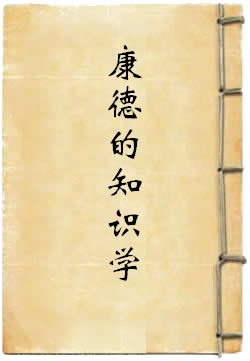 康德的知识学